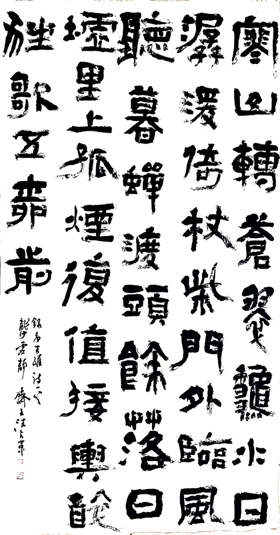 寒山轉蒼翠龝水日
潺湲倚杖柴門外臨風
聽暮蟬渡頭餘落日
墟里上孤煙復值接輿醉
狂歌五柳前
王維詩